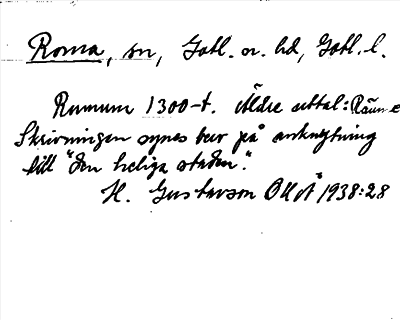 Roma, sn, Gotl. n. hd, Gotl. l.
Rumum 1300-t. Äldre uttal: Räume
Skrivningen synes bero på anknytning
till "den heliga staden".
H. Gustavson 1938:28